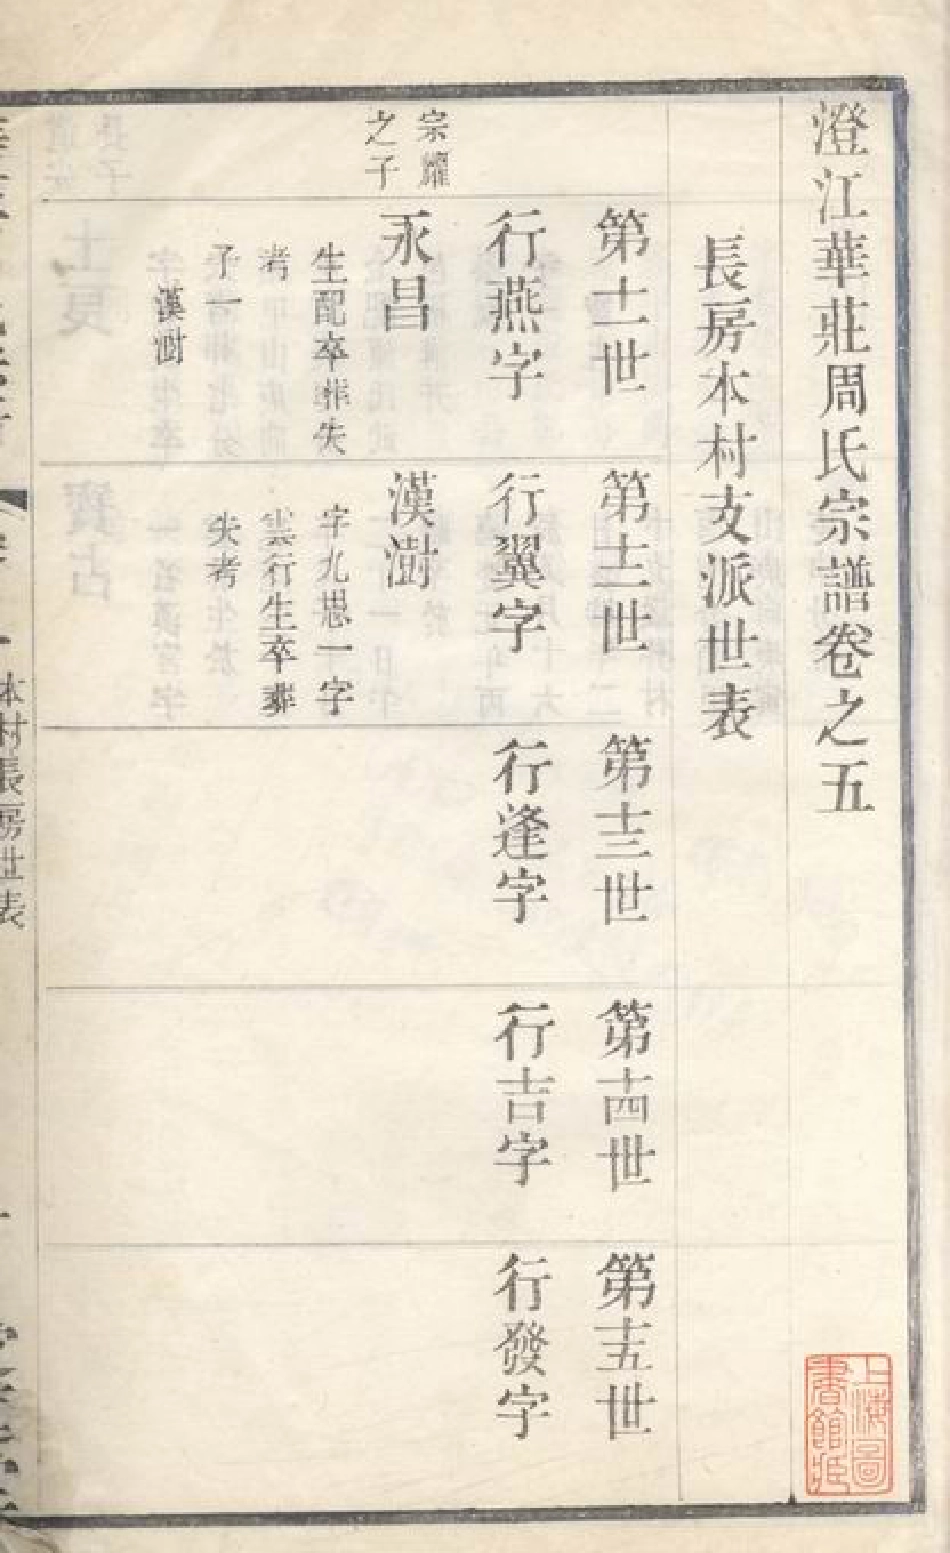 澄江華莊周氏宗譜卷之五
長房本村支派世表
第十一世
行燕字
宗耀
之子
永昌
生配卒葬失
考
子一
漢澍
第十二世
行翼字
漢澍
字九思一字
雲行生卒葬
失考
第十三世
行逢字
第十四世
行吉字
第十五世
行發字
上海圖
書館藏
本村長房世表